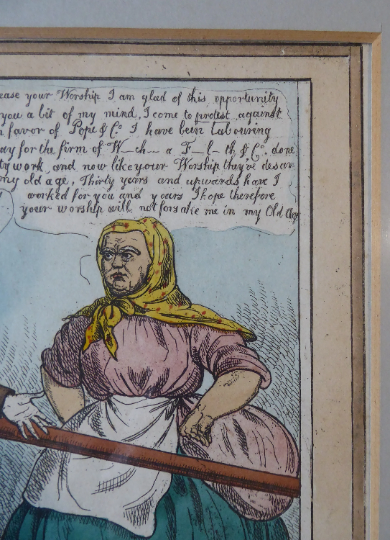 ease your Worship I am glad of this opportunity
you a bit of my mind, I come to protest against
favor of Pope & Co I have been Labouring
ay for the form of W—ch— a F—l—ch & Co. done
ty work, and now like your Worship they've deser
my old age, Thirty years and upwards have I
worked for you and yours I hope therefore
your worship will not forsake me in my Old Age